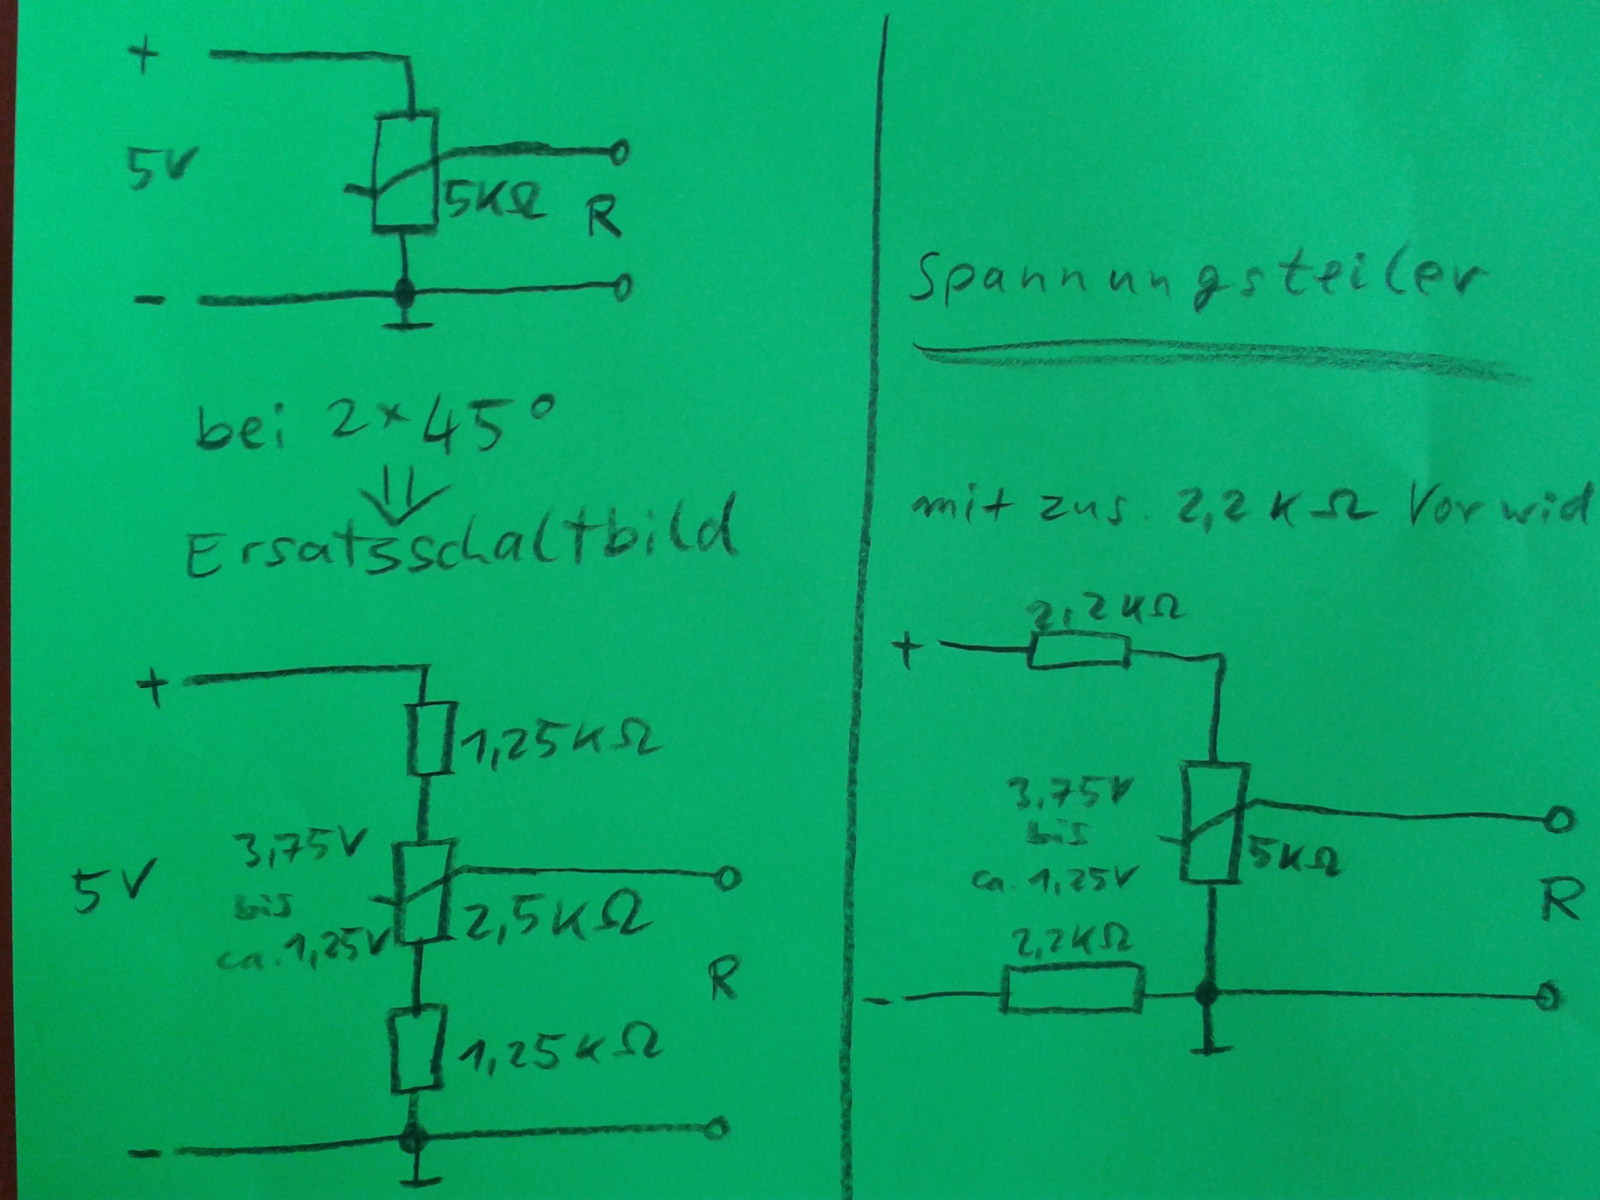 +
5V
5KΩ
R
-
bei 2×45°
⇓
Ersatzsschaltbild
+
1,25KΩ
5V
3,75V
bis
ca. 1,25V
2,5KΩ
R
1,25KΩ
-
Spannungsteiler
mit zus. 2,2KΩ Vorwid
2,2KΩ
+
3,75V
bis
ca. 1,25V
5KΩ
R
2,2KΩ
-